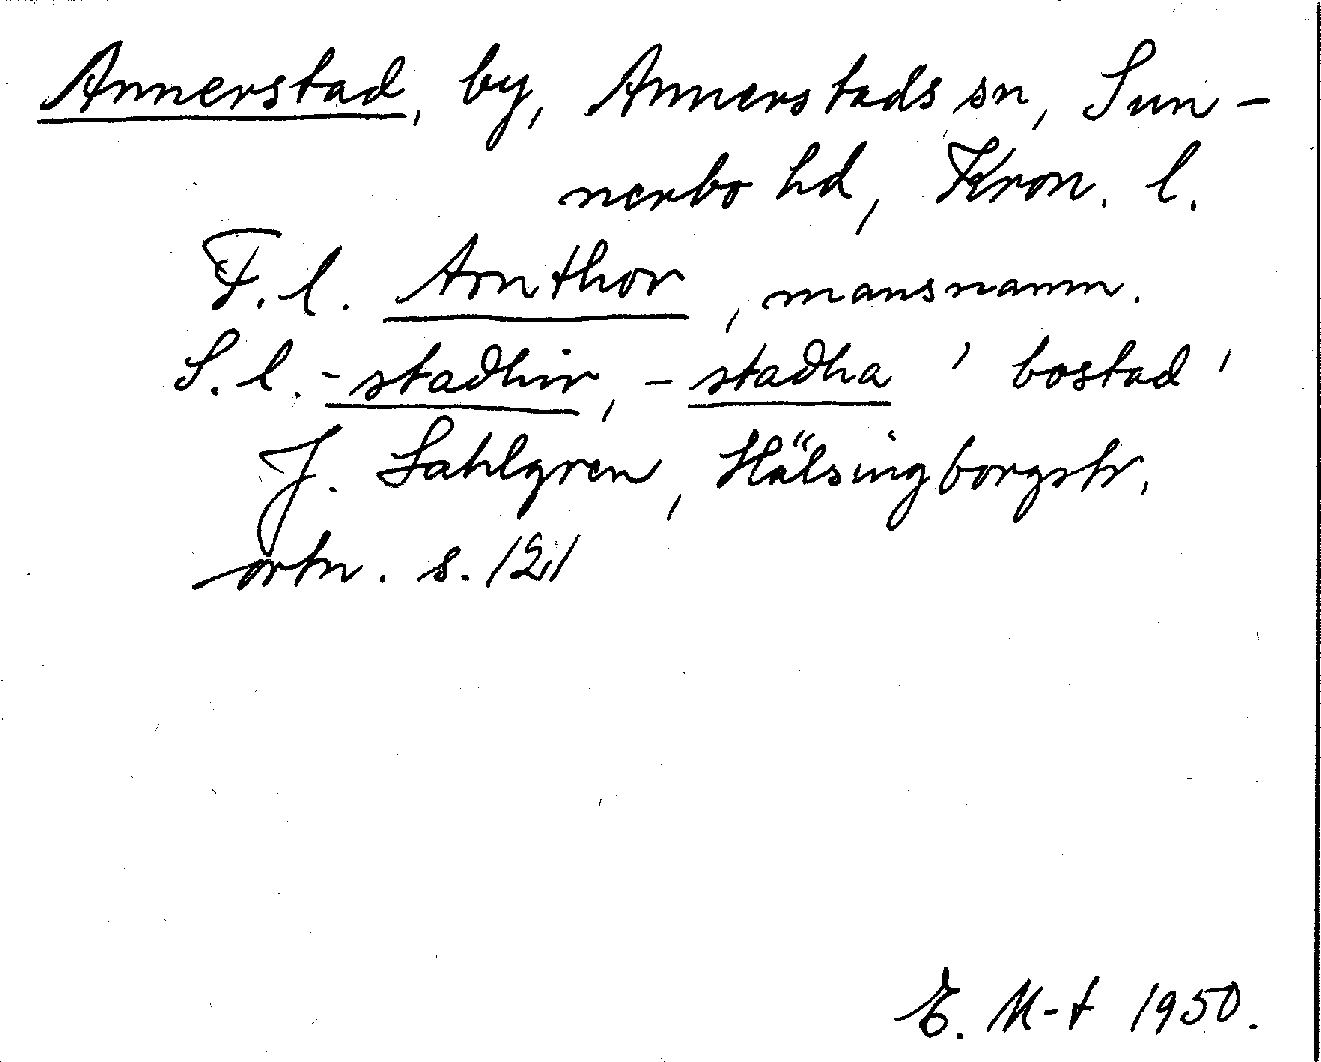 Annerstad, by, Annerstads sn, Sun-
nerbo hd, Kron. l.
F.l. Arnthor, mansnamn.
S.l. -stadhir, -stadha 'bostad'
J. Sahlgren, Hälsingborgstr.
ortn. s. 121
E. M-t 1950.